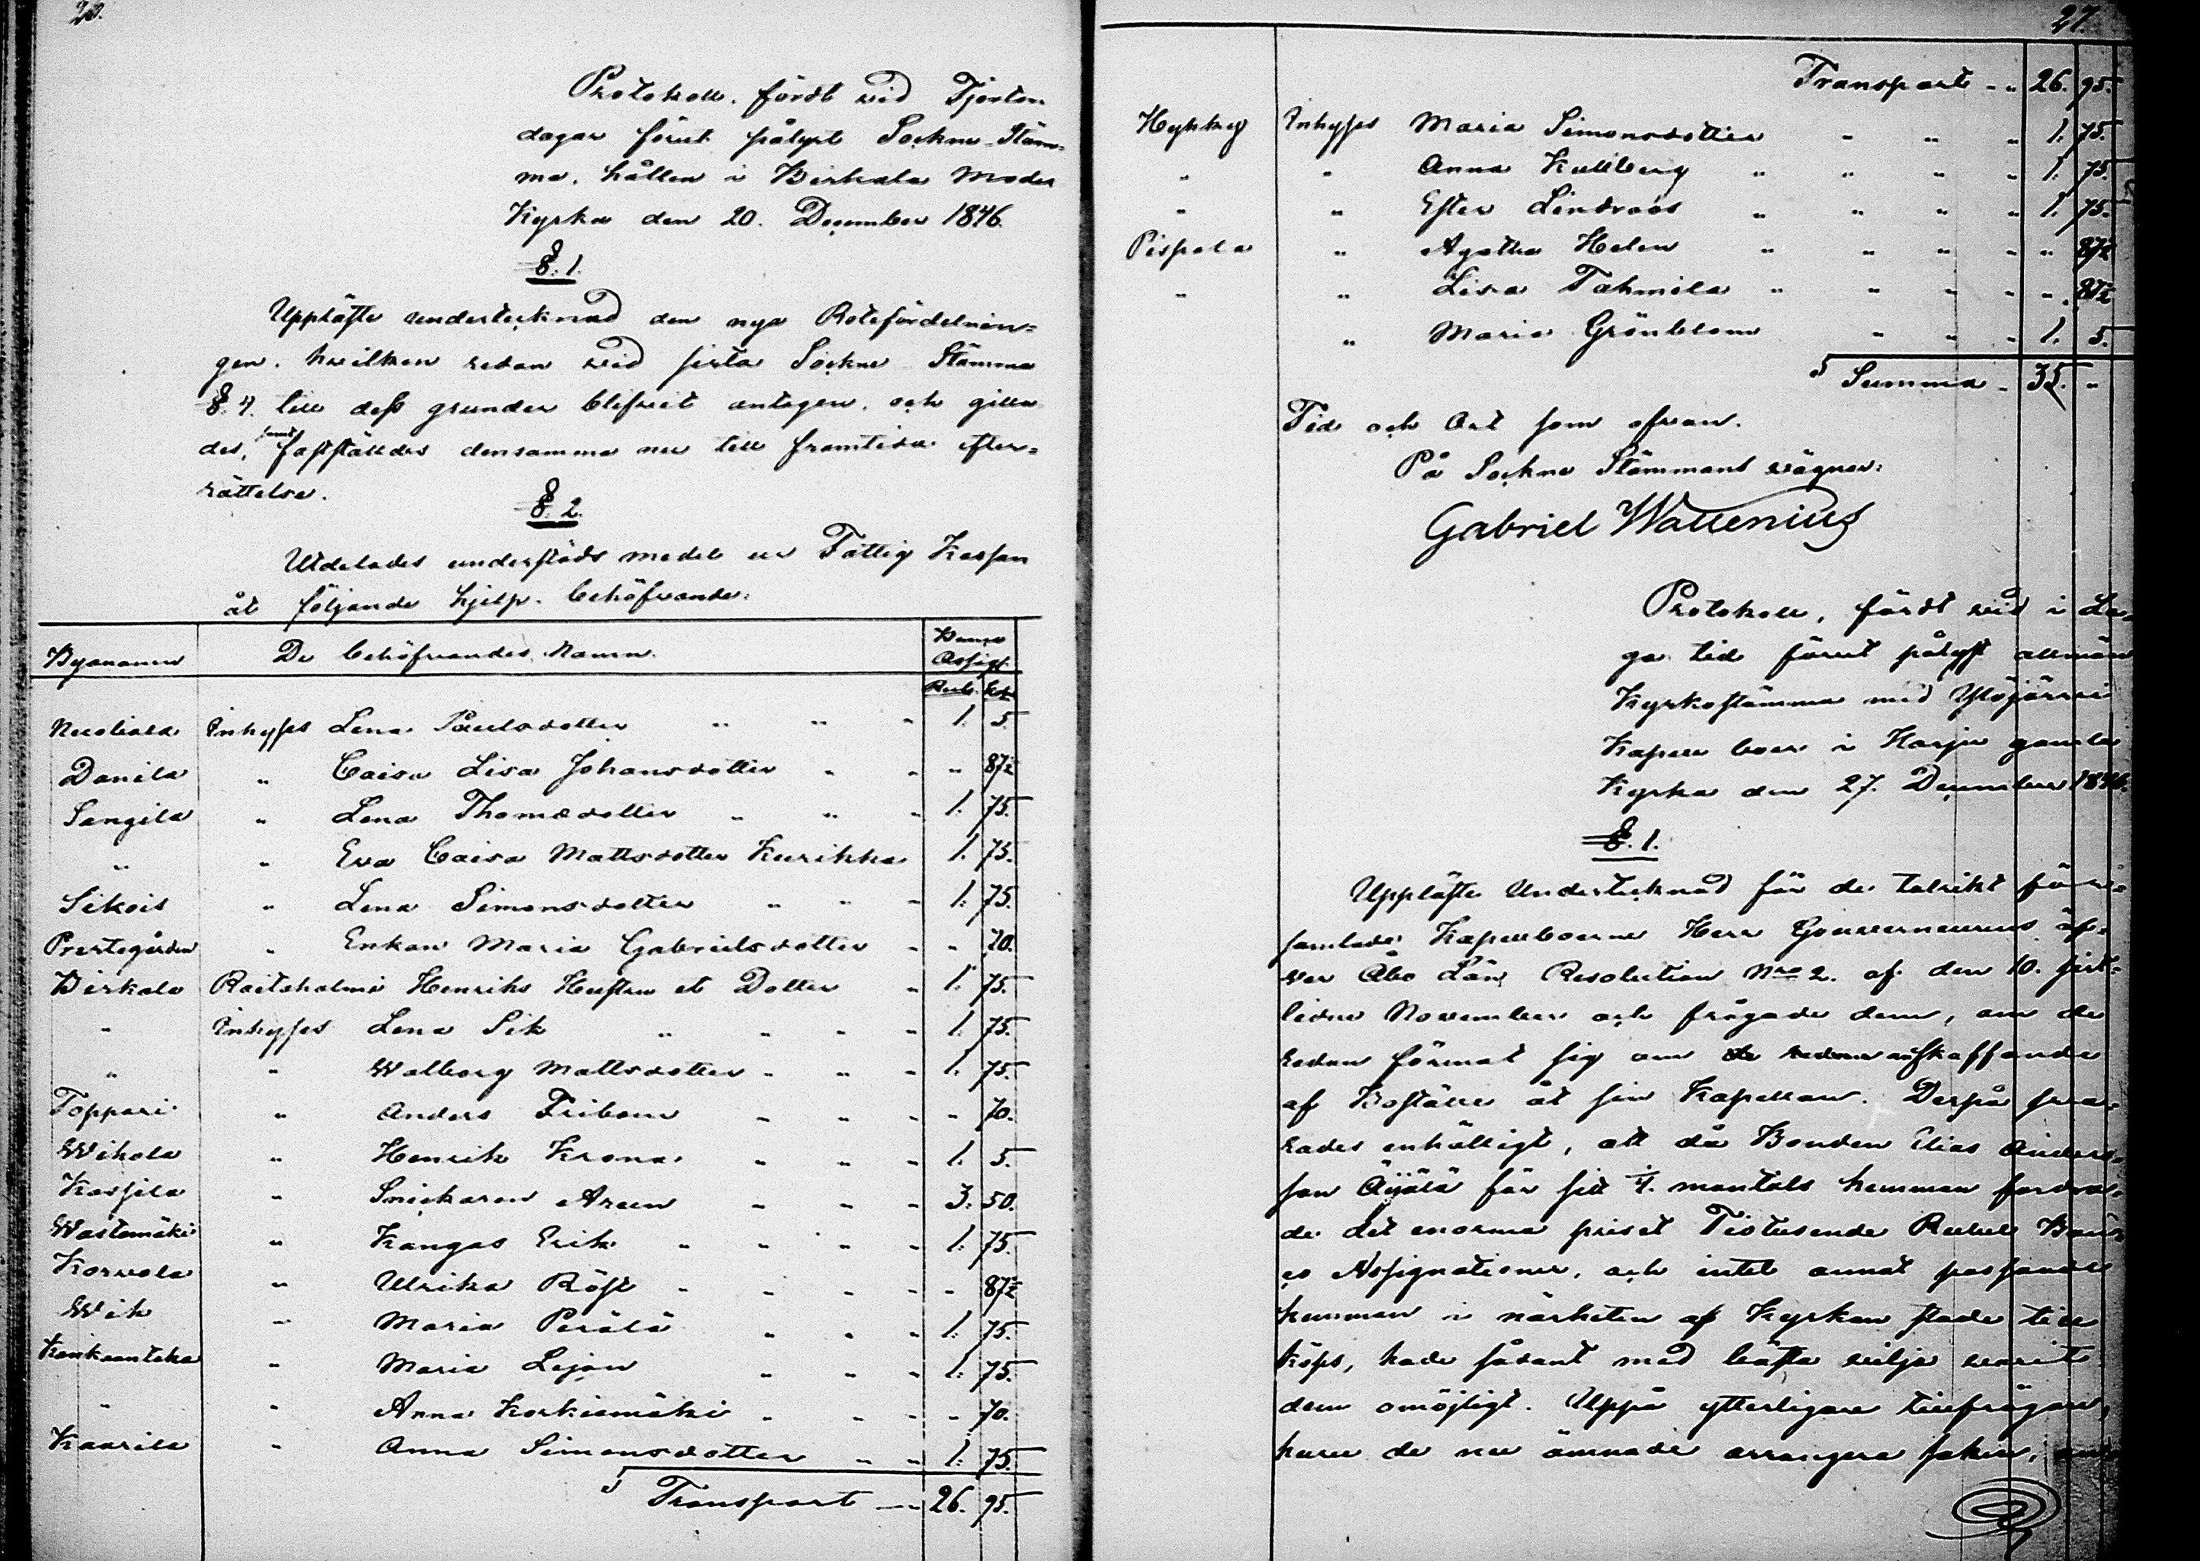 26.
Protokoll, fördt vid Fjorton
dagar förut pålyst Sockne-Stäm-
ma, hållen i Birkala Moder
Kyrka den 20. December 1846.
§. 1.
Uppläste undertecknad den nya Rotefördelnin-
gen, hvilken redan vid sista Sockne Stämma
§. 4. till dess grunder blifvit antagen, och gilla-
des, samt fastställdes densamma nu till framtida efter-
rättelse.
§. 2.
Utdelades understöds medel ur Fattig Kassan
åt följande hjelp-behöfvande:
Byanamn De behöfvandes Namn. Banco Assign.
Rub. Kop.
Nuoliala Inhyses Lena Paulsdotter " " " 1. 5.
Danila " Caisa Lisa Johansdotter " " " 87½
Sangila " Lena Thomasdotter " " " 1. 75.
" " Eva Caisa Mattsdotter Kurikka 1. 75.
Sikois " Lena Simonsdotter " " " 1. 75.
Prestegården " Enkan Maria Gabrielsdotter " " 70.
Birkala Raitaholmi Henriks Hustru et Dotter " 1. 75.
" Inhyses Lena Sik " " " " 1. 75.
" " Walborg Mattsdotter " " " 1. 75.
Toppari " Anders Fribom " " " " 70.
Wihola " Henrik Krona " " " 1. 5.
Kassila " Snickaren Areen " " " 3. 50.
Wastamäki " Kangas Erik " " " " 1. 75.
Korvola " Ulrika Röst " " " " " 87½
Wik " Maria Perälä " " " 1. 75.
Kankaantaka " Maria Lejon " " " 1. 75.
" " Anna Korkiamäki " " " " 70.
Kaarila " Anna Simonsdotter " " 1. 75.
Transport — 26. 95.
27.
Transport - " 26. 95.
Hyhky Inhyses Maria Simonsdotter " " " 1. 75.
" " Anna Kullberg " " " " 1. 75.
" " Ester Lindroos " " " " 1. 75.
Pispala " Agatha Helen " " " " " 87½
" " Lisa Tahmila " " " " " 87½
" Maria Grönblom " " " 1. 5.
Summa - 35. "
Tid och Ort som ofvan.
På Sockne Stämmans vägnar:
Gabriel Wallenius
Protokoll, fördt vid i La-
ga tid förut pålyst allmän
Kyrkostämma med Ylöjärvi
Kapell boer i Harju gamla
Kyrka den 27. December 1846.
§. 1.
Uppläste Undertecknad för de talrikt för-
samlade Kapellboerne Herr Gouverneurens öf-
ver Åbo Län Resolution Nro 2. af den 10. sist-
lidne November och frågade dem, om de
redan förmat sig om anskaffande
af Boställe åt sin Kapellan. Derpå sva-
rades enhälligt, att då Bonden Elias Anders-
son Äijälä för sitt ¼. mantals hemman fordra-
de det enorma priset Tiotusende Rubel Ban-
co Assignationer, och intet annat passande
hemman i närheten af Kyrkan stode till
köps, hade sådant med bästa vilja varit
dem omöjligt. Uppå ytterligare tillfrågan,
huru de nu ämnade arrangera saken,